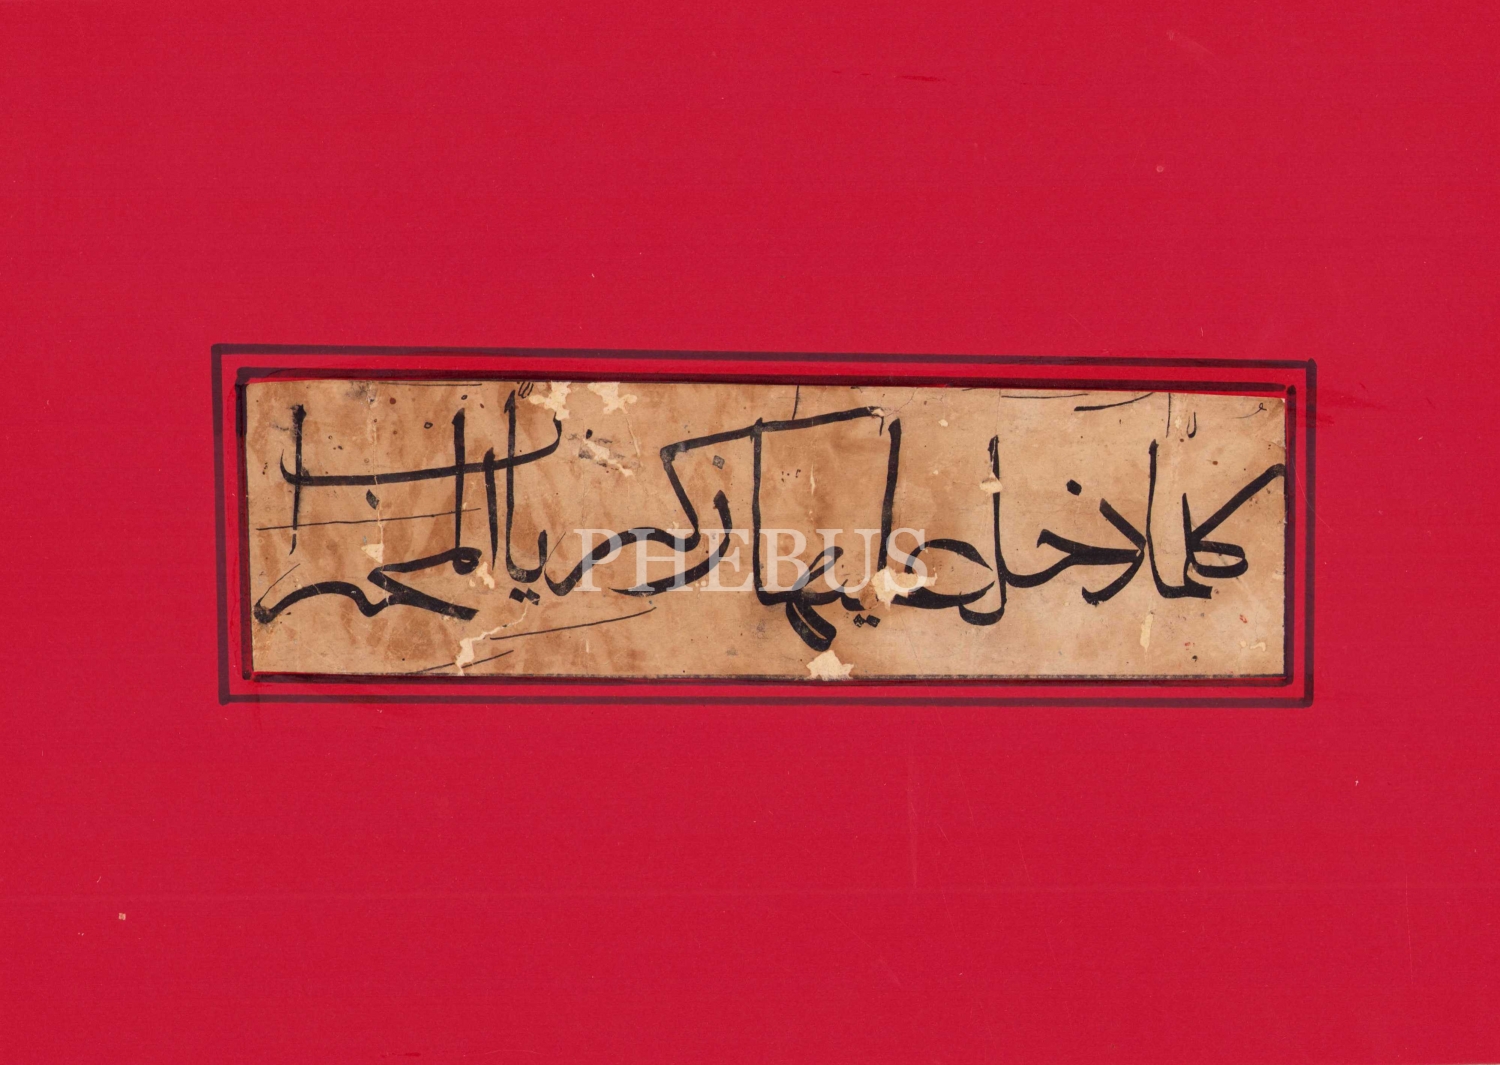 كلما دخل عليها زكريا المحراب
PHEBUS